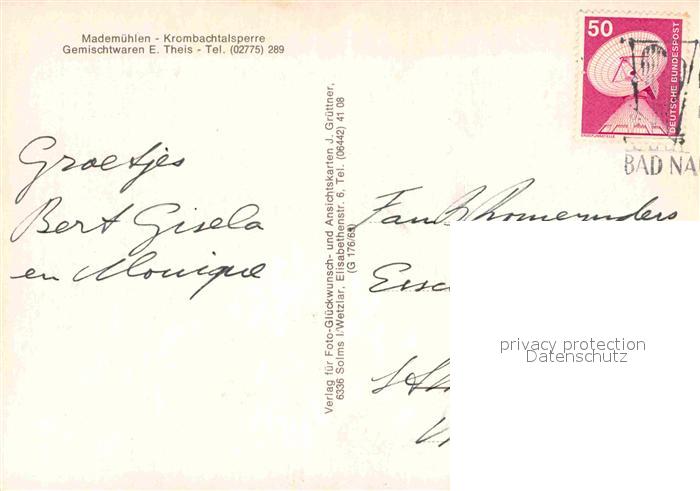 Mademühlen - Krombachtalsperre
Gemischtwaren E. Theis - Tel. (02775) 289
50
DEUTSCHE BUNDESPOST
BAD NA
Groetjes
Bert Gisela
en Monique
Verlag für Foto-Glückwunsch- und Ansichtskarten J. Grüttner,
6336 Solms l/Wetzlar, Elisabethenstr. 6, Tel. (06442) 41 08
(G 176/69)
Fam
privacy protection
Datenschutz